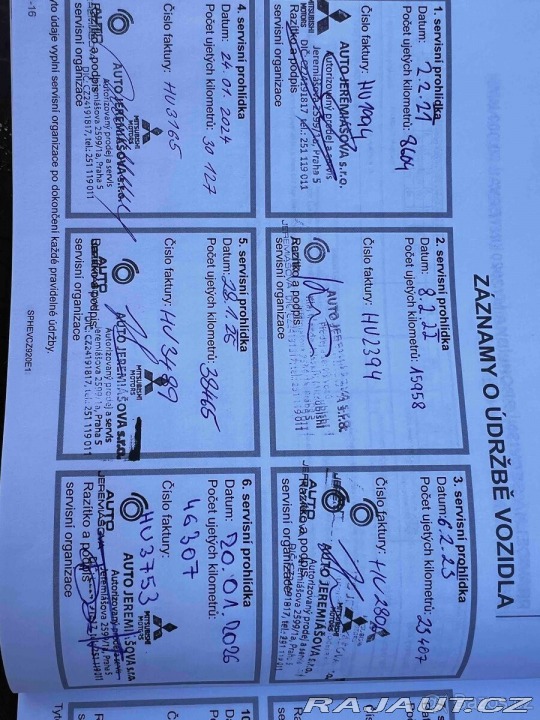 ZÁZNAMY O ÚDRŽBĚ VOZIDLA
1. servisní prohlídka
Datum: 2.2.21
Počet ujetých kilometrů: 8604
Číslo faktury: HU1994
Razítko a podpis
servisní organizace
MITSUBISHI
MOTORS
AUTO JEREMIÁŠOVA s.r.o.
Autorizovaný prodej a servis
Jeremiášova 2599/1a, Praha 5
DIČ: CZ24191817, tel.: 251 119 011
2. servisní prohlídka
Datum: 8.2.22
Počet ujetých kilometrů: 15958
Číslo faktury: HU2394
Razítko a podpis
servisní organizace
3. servisní prohlídka
Datum: 6.2.23
Počet ujetých kilometrů: 23487
Číslo faktury:
Razítko a podpis
servisní organizace
AUTO JEREMIÁŠOVA s.r.o.
Autorizovaný prodej a servis
4. servisní prohlídka
Datum: 24.01.2024
Počet ujetých kilometrů: 30 127
Číslo faktury: HU3165
Razítko a podpis
servisní organizace
MITSUBISHI
MOTORS
AUTO JEREMIÁŠOVA s.r.o.
Autorizovaný prodej a servis
Jeremiášova 2599/1a, Praha 5
DIČ: CZ24191817, tel.: 251 119 011
5. servisní prohlídka
Datum: 28.1.25
Počet ujetých kilometrů: 38465
Číslo faktury: HU3489
Razítko a podpis
servisní organizace
MITSUBISHI
MOTORS
AUTO JEREMIÁŠOVA s.r.o.
Autorizovaný prodej a servis
Jeremiášova 2599/1a, Praha 5
DIČ: CZ24191817, tel.: 251 119 011
6. servisní prohlídka
Datum: 20.01.2026
Počet ujetých kilometrů:
46307
Číslo faktury:
HU3753
Razítko a podpis
servisní organizace
MITSUBISHI
MOTORS
AUTO JEREMIÁŠOVA s.r.o.
Autorizovaný prodej a servis
Jeremiášova 2599/1a, Praha 5
yto údaje vyplní servisní organizace po dokončení každé pravidelné údržby.
-16
SPHEVCZ920E1
RAJAUT.CZ